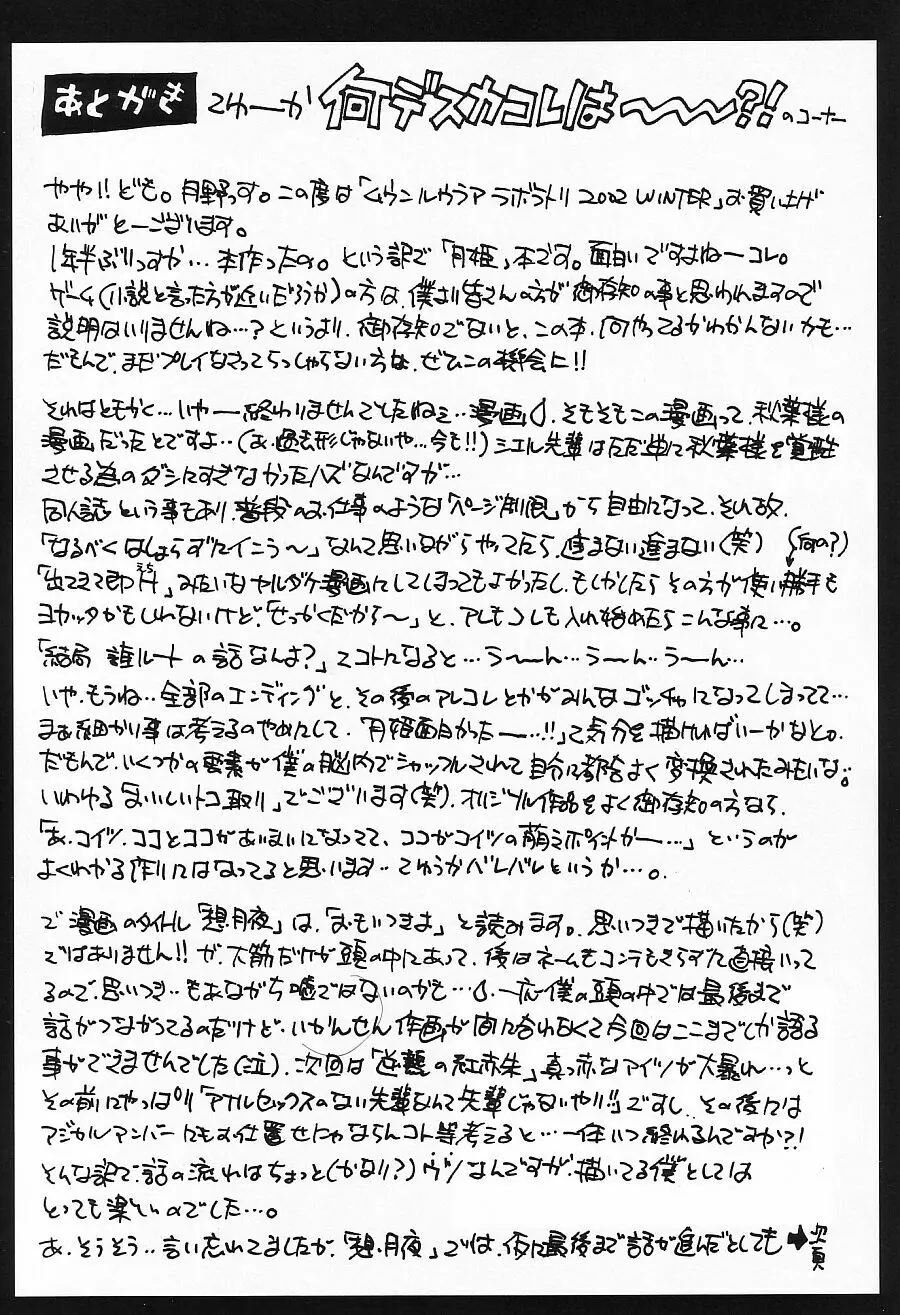 あとがき てゆーか 何デスカコレは〜〜〜?! のコーナー
やや!!ども。月野っす。この度は「ムウンルウラア ラボラトリ 2002 WINTER」お買い上げ
ありがとーございます。
1年半ぶりっすか…本作ったの。という訳で「月姫」本です。面白いですよねーコレ。
ゲーム(小説と言った方が近いだろうか)の方は、僕より皆さんの方が御存知の事と思われますので
説明はいりませんね…?というより、御存知でないと、この本、何やってるかわかんないかも…
だもんで、まだプレイなさってらっしゃらない方は、ぜひこの機会に!!
それはともかく…いやー終わりませんでしたねェ…漫画。そもそもこの漫画って、秋葉様の
漫画だったとですよ…(あ、過去形じゃないや…今も!!)シエル先輩はただ単に秋葉様を覚醒
させる為のダシにすぎなかったハズなんですが…
同人誌という事もあり、普段のお仕事のような「ページ制限」から自由になって、それ故、
「なるべくはしょらずにイこう〜」なんて思いながらやってたら、進まない進まない(笑) (何の?)
「出てきて即」みたいなヤルダケ漫画にしてしまってもよかったし、もしかしたらその方が使い勝手も
ヨカッタかもしれないけど、「せっかくだから〜」と、アレもコレも入れ始めたらこんな事に…。
「結局 誰ルートの話なんよ?」てコトになると…う〜〜ん…う〜ん…う〜ん…
いや、もうね…全部のエンディングと、その後のアレコレとかがみんなゴッチャになってしまってて…
まぁ細かい事は考えるのやめにして、「月姫面白かったー…!!」て気分を描ければいーかなと。
だもんで、いくつかの要素が僕の脳内でシャッフルされて自分に都合よく変換されたみたいな。
いわゆる「おいしいトコ取り」でございます(笑)。オリジナル作品をよく御存知の方なら、
「あ、コイツ、ココとココがあいまいになってて、ココがコイツの萌えポイントかー…」というのが
よくわかる作りにはなってると思います…てゆうかバレバレというか…。
で、漫画のタイトル「想月夜」は、「おもいつきよ」と読みます。思いつきで描いたから(笑)
ではありません!!が、大筋だけが頭の中にあって、後はネームもコンテもきらずに直接いって
るので、思いつき…もあながち嘘ではないのかも…。一応僕の頭の中では最後まで
話がつながってるのだけど、いかんせん作画が間に合わなくて今回はここまでしか語る
事ができませんでした(泣)。次回は「逆襲の紅赤朱」真っ赤なアイツが大暴れ…っと
その前にやっぱり「アナルセックスのない先輩なんて先輩じゃないやい!!」ですし、その後には
マジカルアンバーにもお仕置せにゃならんコト等考えると…一体いつ終わるんですか?!
そんな訳で、話の流れはちょっと(かなり?)ヴツなんですが、描いてる僕としては
とっても楽しいのでした…。
あ、そうそう…言い忘れてましたが、「想月夜」では、仮に最後まで話が進んだとしても ➡次頁